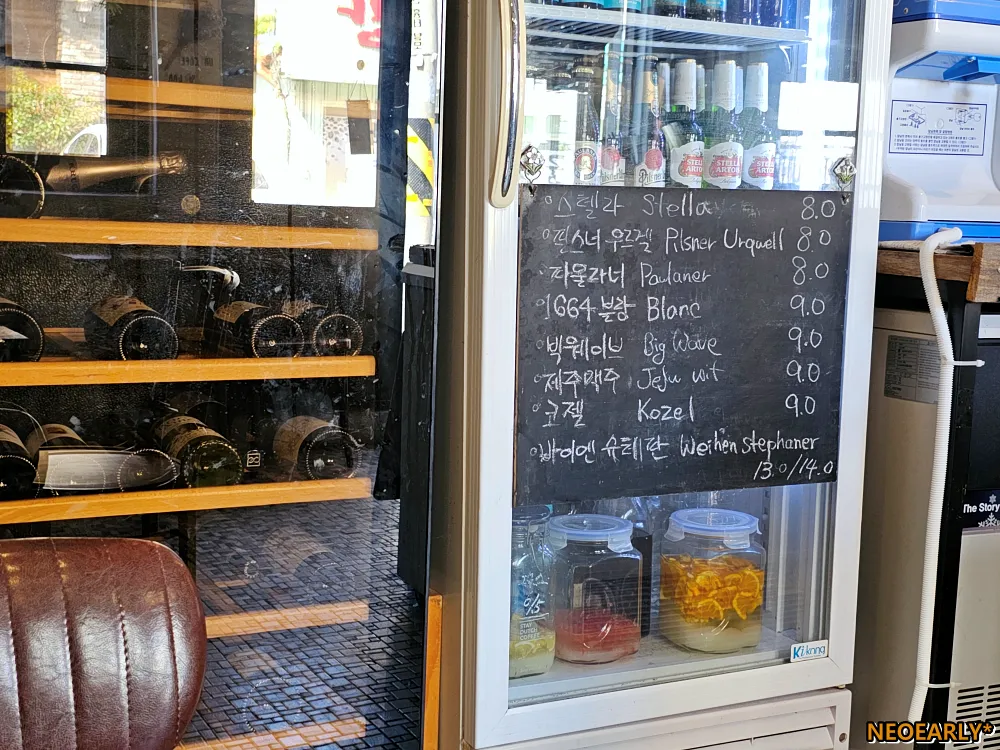 STELLA
ARTOIS
STELLA
ARTOIS
STELLA
ARTOIS
스텔라 Stella 8.0
필스너 우르켈 Pilsner Urqwell 8.0
파울라너 Paulaner 8.0
1664블랑 Blanc 9.0
빅웨이브 Big Wave 9.0
제주맥주 Jeju wit 9.0
코젤 Kozel 9.0
바이엔슈테판 Weihenstephaner
13.0/14.0
STAY
DUTCH
COFFEE
The Story
NEOEARLY*